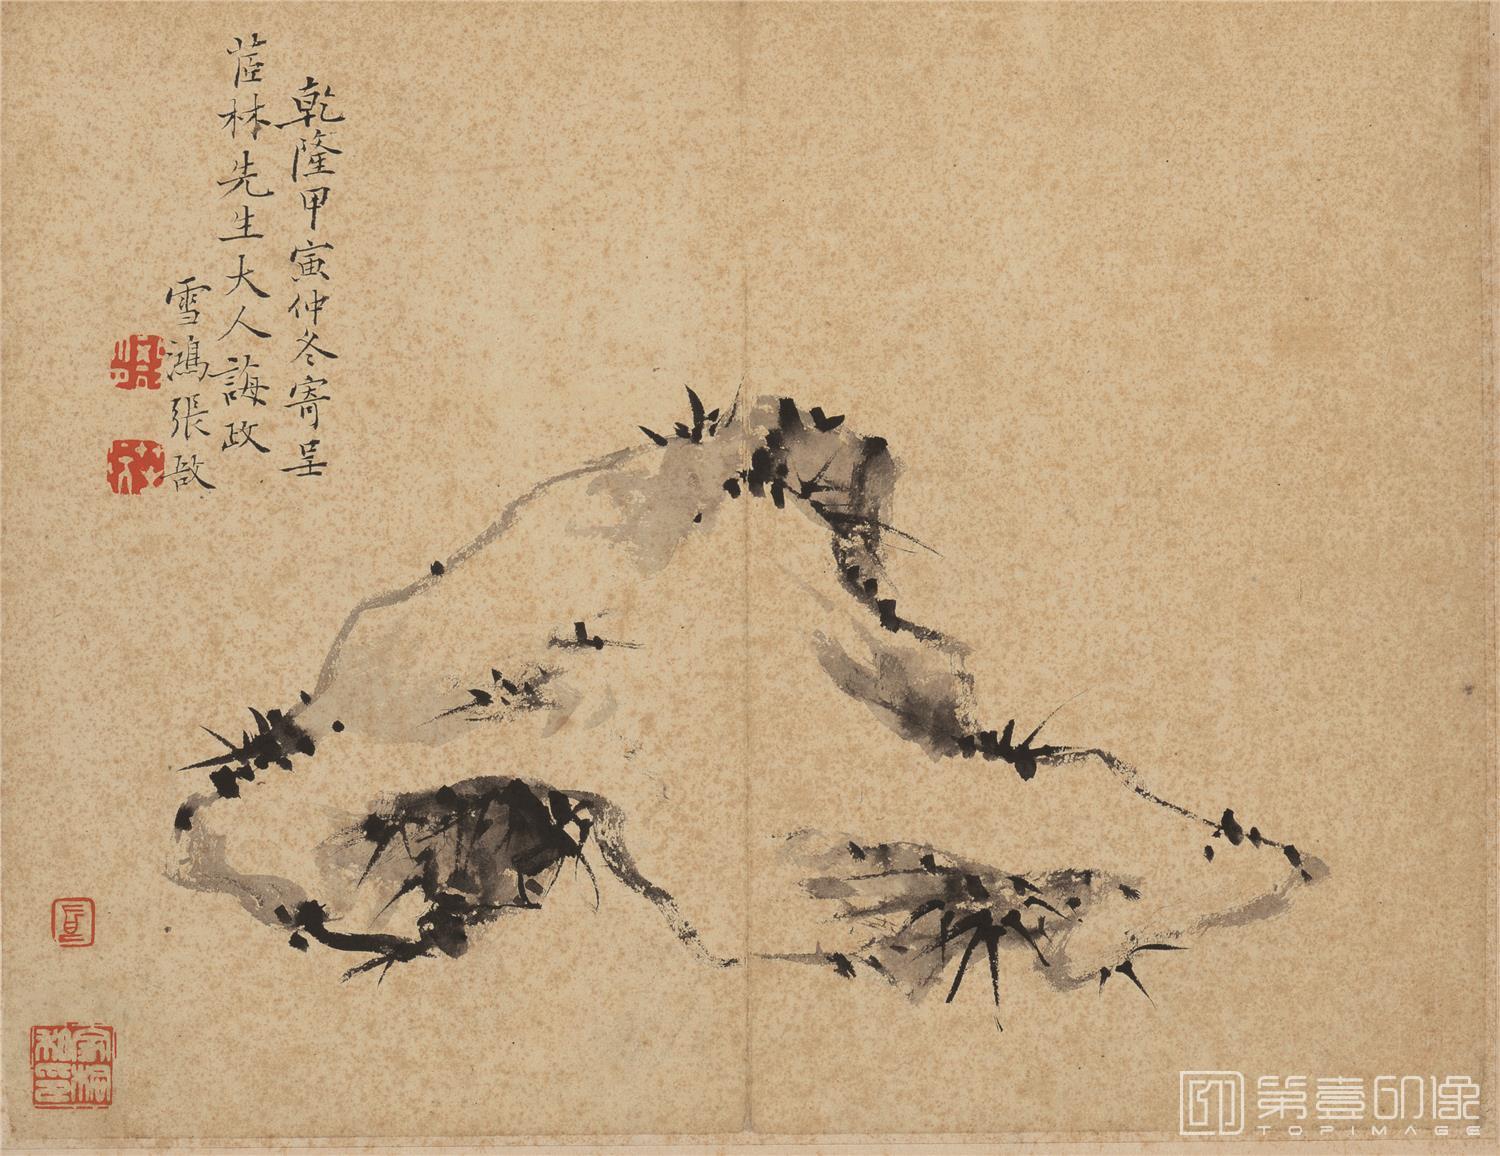 乾隆甲寅仲冬寄呈
茝林先生大人誨政
雪鴻張敔
第壹印像
TOPIMAGE